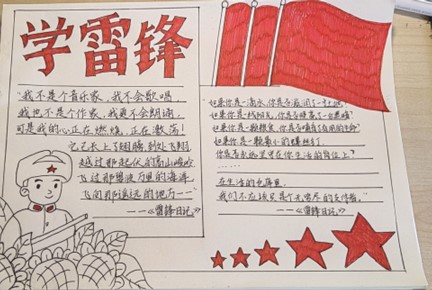 学雷锋
"我不是个音乐家,我不会歌唱
我也不是个作家,我更不会朗诵
可是我的心正在燃烧,正在激荡!
它已长上了翅膀到处飞翔
越过那起伏的高山峻岭
飞过那碧波万里的海洋
飞向那遥远的地方——"
——《雷锋日记》
"如果你是一滴水,你是否滋润了一寸土地
如果你是一线阳光,你是否照亮了一分黑暗
如果你是一颗粮食,你是否哺育了有用的生命
如果你是一颗最小的螺丝钉
你是否永远坚守在你生活的岗位上?
……
在生活的仓库里
我们不应该只是个无穷尽的支付者。"
——《雷锋日记》